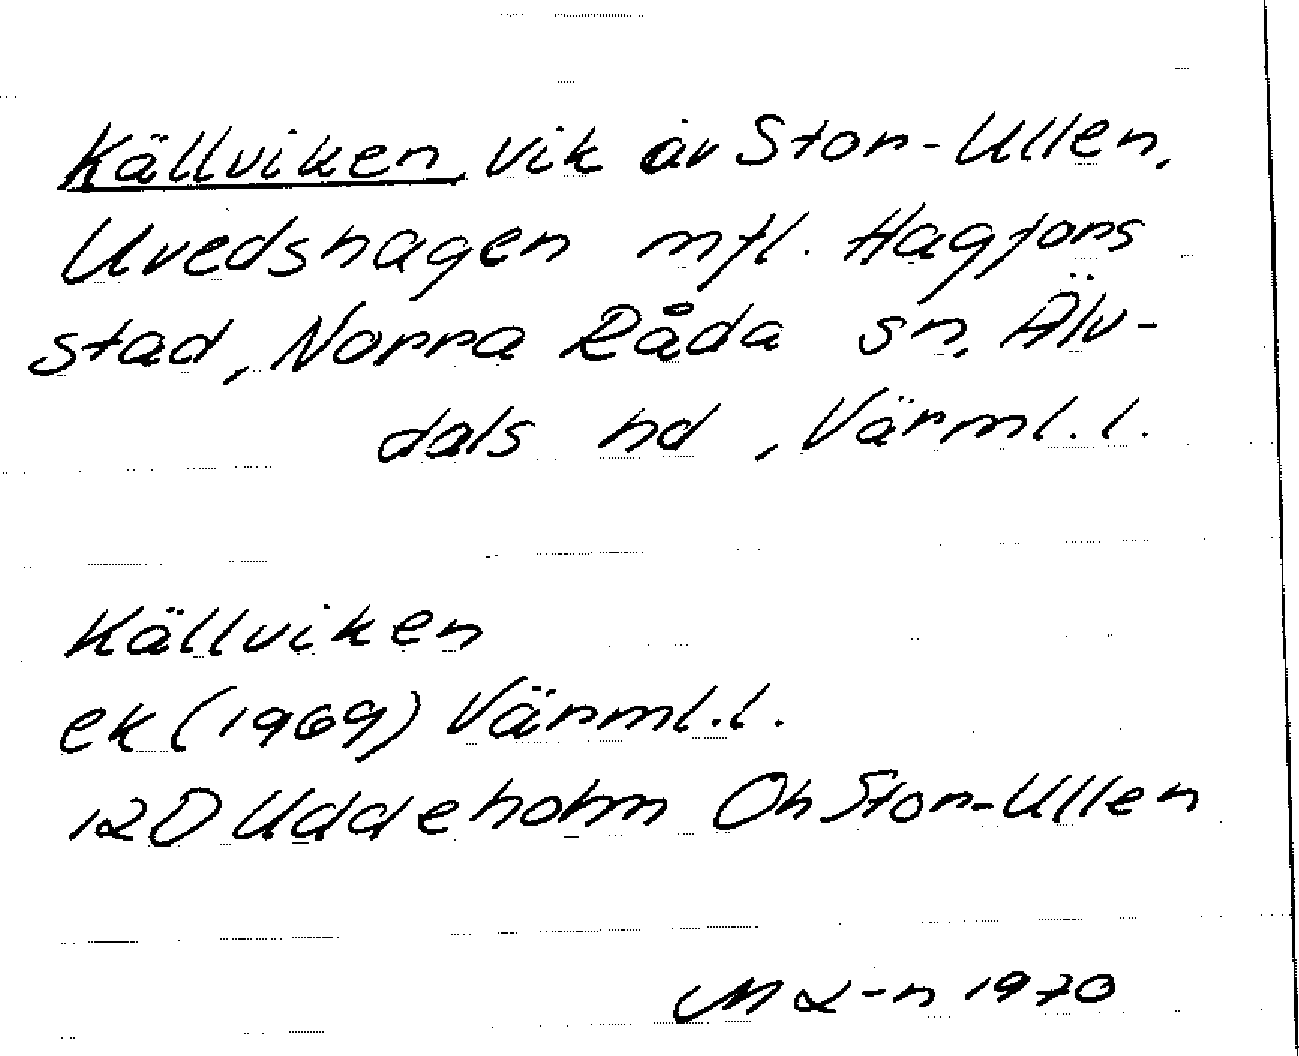 Källviken, vik av Stor-Ullen,
Uvedshagen mfl. Hagfors
stad, Norra Råda sn, Älv-
dals hd, Värml. l.
Källviken
ek (1969) Värml. l.
12D Uddeholm Oh Stor-Ullen
1970